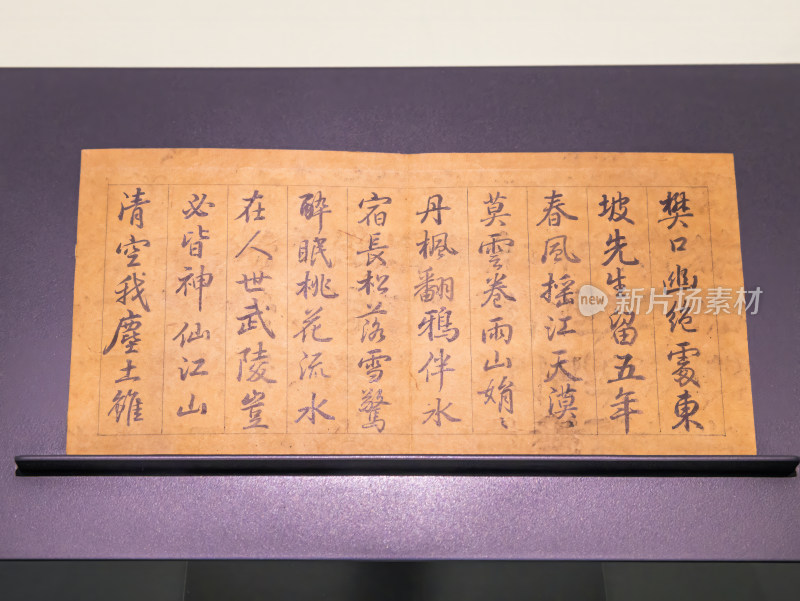 樊口幽絕處東
坡先生留五年
春風搖江天漠〻
莫雲卷雨山娟〻
丹楓翻鴉伴水
宿長松落雪驚
醉眠桃花流水
在人世武陵豈
必皆神仙江山
清空我塵土雖
new 新片场素材